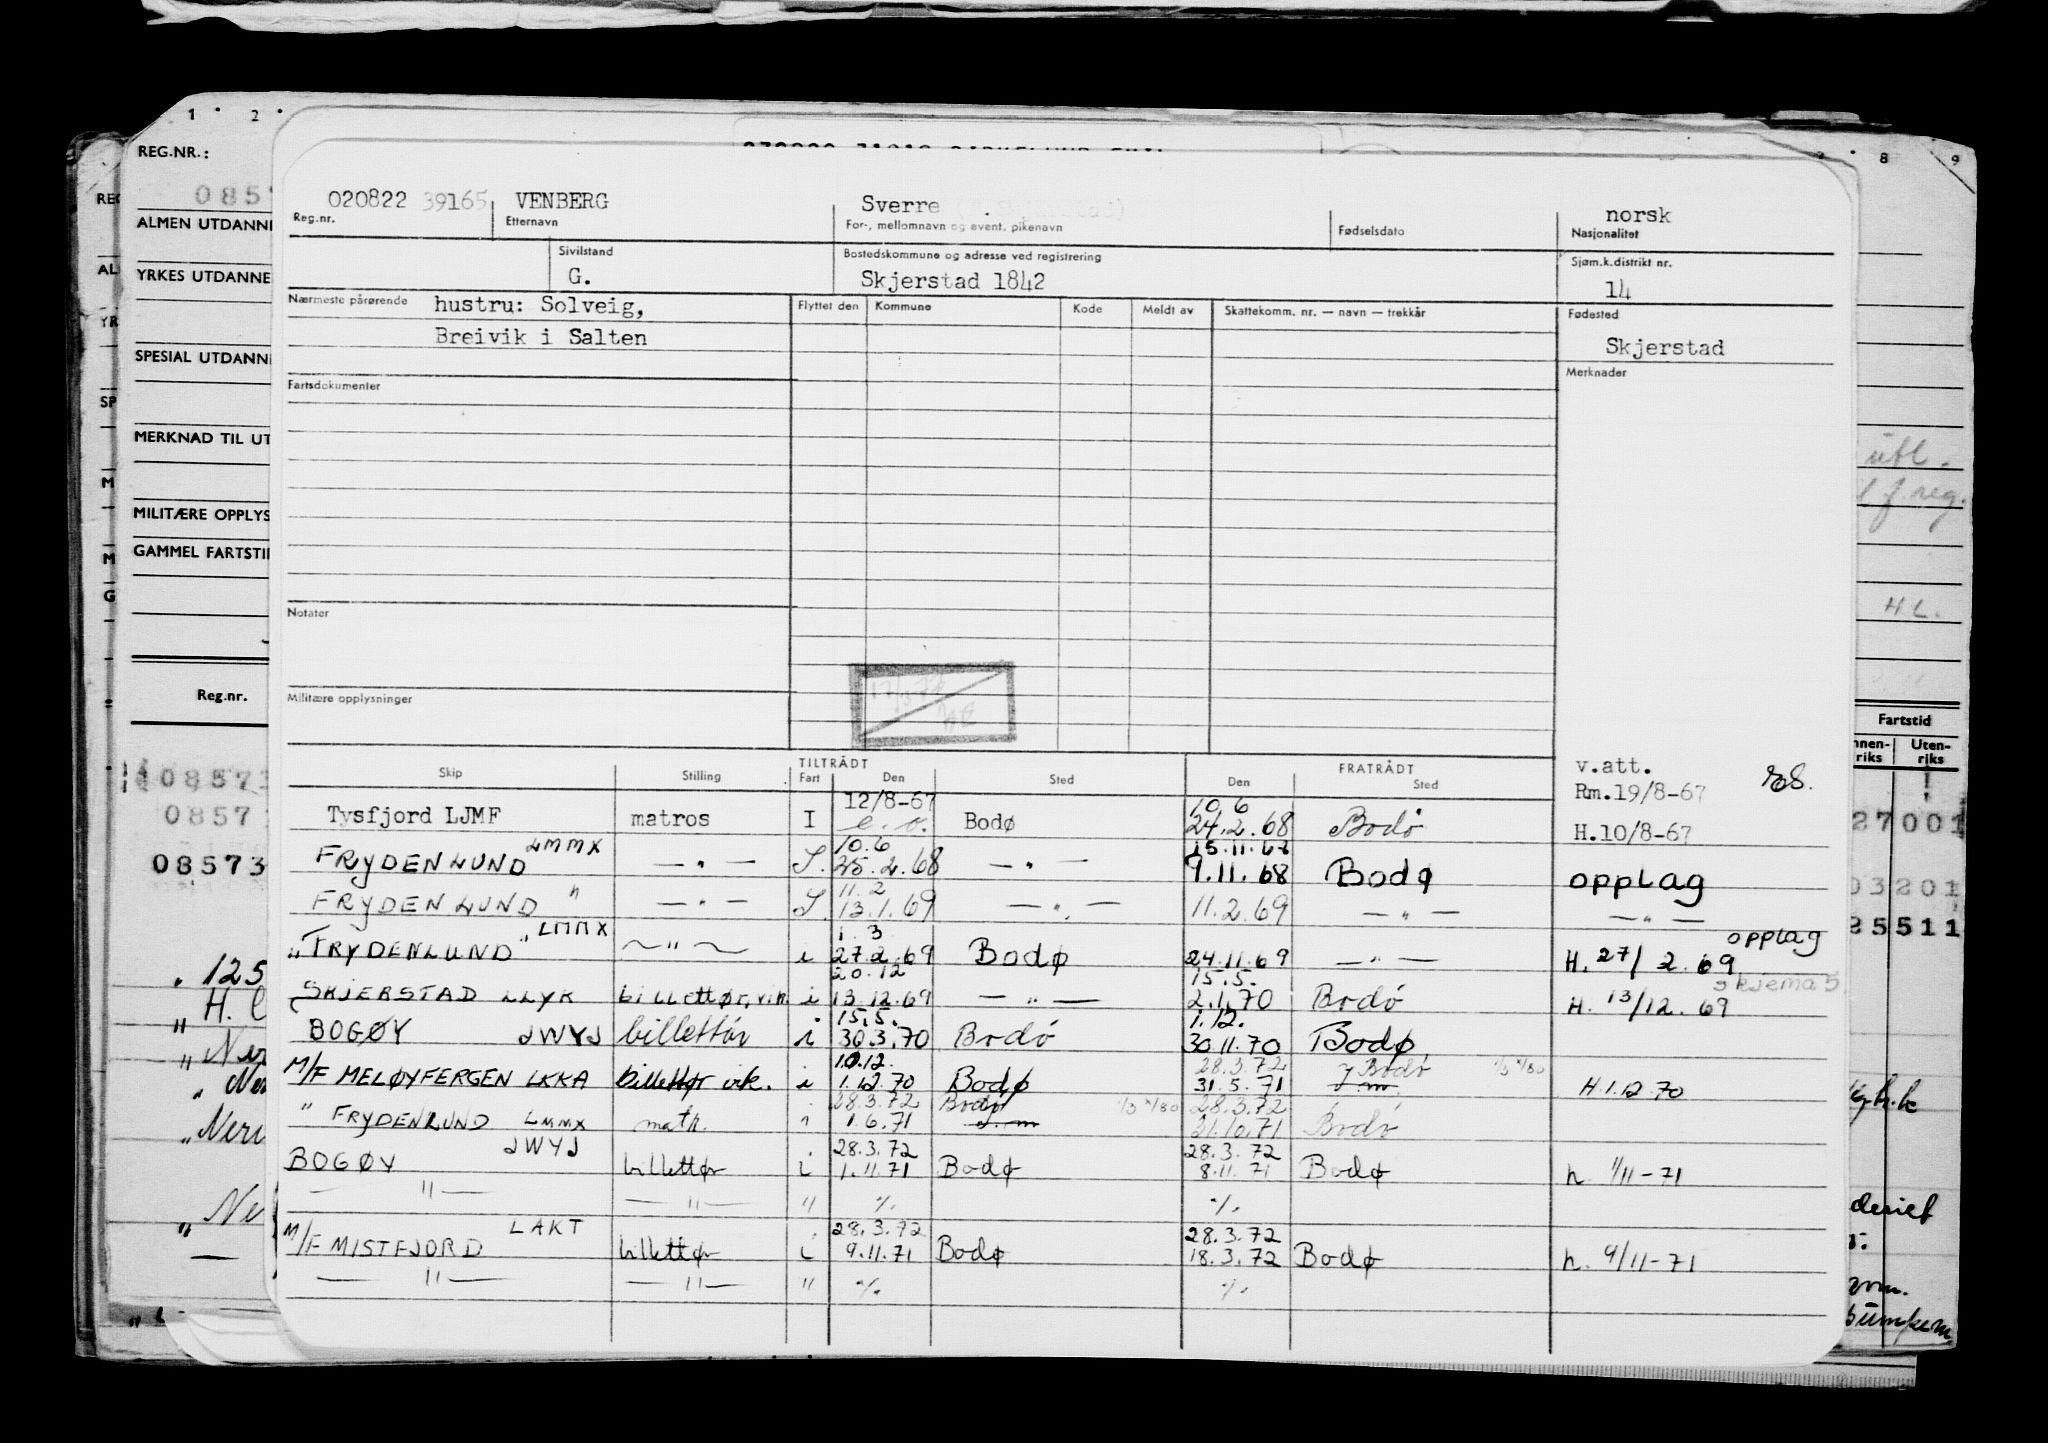 1 2 8 9
REG.NR.:
ALMEN UTDANNE
YRKES UTDANNE
SPESIAL UTDANN
MERKNAD TIL UT
MILITÆRE OPPLYS
GAMMEL FARTSTI
Reg.nr.
020822 39165 VENBERG Sverre norsk
Reg.nr. Etternavn For-, mellomnavn og event. pikenavn Fødselsdato Nasjonalitet
Sivilstand Bostedskommune og adresse ved registrering Sjøm.k.distrikt nr.
G. Skjerstad 1842 14
Nærmeste pårørende hustru: Solveig, Flyttet den Kommune Kode Meldt av Skattekomm. nr. — navn — trekkår Fødested
Breivik i Salten Skjerstad
Fartsdokumenter Merknader
Notater
Militære opplysninger
TILTRÅDT FRATRÅDT v.att.
Skip Stilling Fart Den Sted Den Sted Rm.19/8-67
12/8-67 10.6
Tysfjord LJMF matros I e.o. Bodø 24.2.68 Bodø H.10/8-67
LMMX 10.6 15.11.68
FRYDENLUND — " — S. 25.2.68 — " — 9.11.68 Bodø opplag
11.2
FRYDENLUND " — " — S. 13.1.69 — " — 11.2.69 — " — — " —
LMMX 1.3 opplag
" FRYDENLUND " — " — i 27.2.69 Bodø 24.11.69 — " — H. 27/2.69
20.12 15.5. skjema 5
SKJERSTAD LLYK billettør, vik. i 13.12.69 — " — 2.1.70 Bodó H. 13/12.69
15.5. 1.12.
BOGØY JWYJ billettór i 30.3.70 Bodó 30.11.70 Bodø
10.12. 28.3.72 Bodó
M/F MELØYFERGEN LKKA billettør vik. i 1.12.70 Bodø 31.5.71 H.1.12.70
28.3.72 Bodø 28.3.72
" FRYDENLUND LMMX matr. i 1.6.71 31.10.71 Bodó
JWYJ 28.3.72 28.3.72
BOGØY billettør i 1.11.71 Bodø 8.11.71 Bodø h. 1/11-71
— " — — " — " %. %.
LAKT 28.3.72 28.3.72
M/F MISTFJORD billettør i 9.11.71 Bodø 18.3.72 Bodø h. 9/11-71
— " — — " — " %. %.
utl.
f. reg.
H.L.
Fartstid
nnen-riks Uten-riks
27001
03201
25511
08573
0857
08573